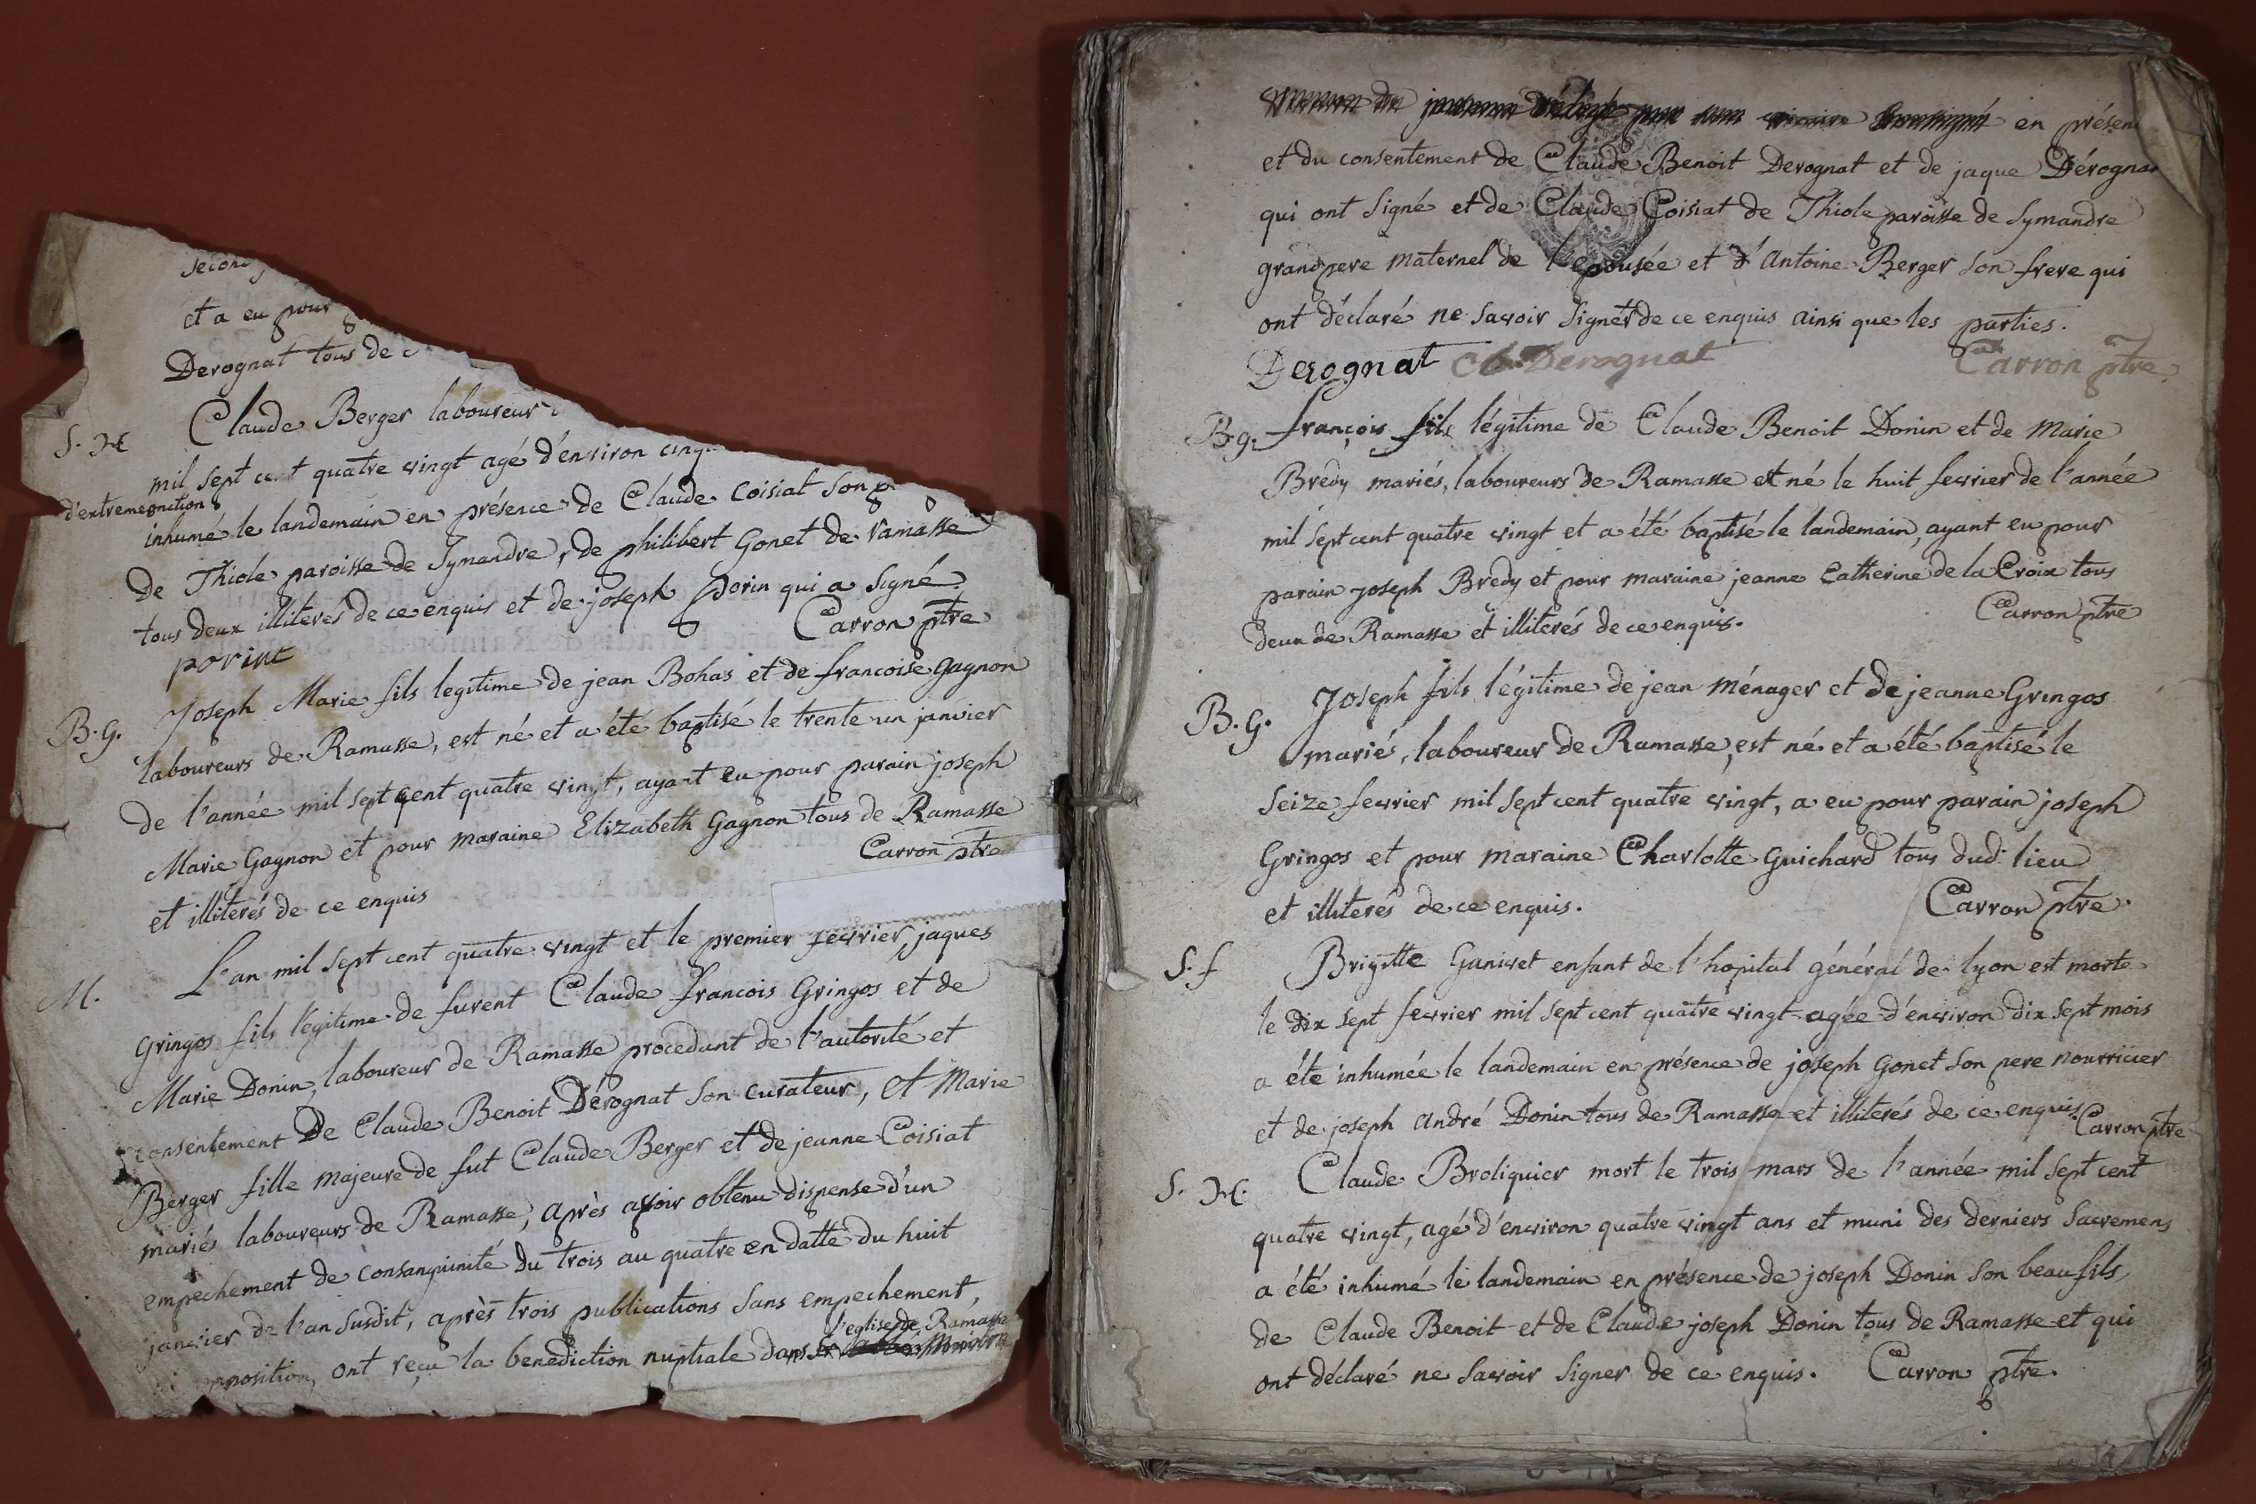 et a eu pour
Derognat tous de
S. H Claude Berger laboureur
mil sept cent quatre vingt agé d'environ cinq
d'extremeonction
inhumé le landemain en présence de Claude Coisiat son
de Thiole paroisse de Symandre, de philibert Gonet de ramasse
tous deux illiterés de ce enquis et de joseph Porin qui a signé
porint Carron ptre
B. G. Joseph Marie fils legitime de jean Bohas et de francoise Gagnon
laboureurs de Ramasse, est né et a été baptisé le trente un janvier
de l'année mil sept cent quatre vingt, ayant eu pour parain joseph
Marie Gagnon et pour maraine Elizabeth Gagnon tous de Ramasse
et illiterés de ce enquis Carron ptre
M. L'an mil sept cent quatre vingt et le premier fevrier, jaques
Gringos fils légitime de furent Claude francois Gringos et de
Marie Donin, laboureur de Ramasse procedant de l'autorité et
consentement De Claude Benoit Dérognat son curateur, et Marie
Berger fille majeure de fut Claude Berger et de jeanne Coisiat
mariés laboureurs de Ramasse, après avoir obtenu dispense d'un
empechement de consanguinité du trois au quatre en datte du huit
janvier de l'an susdit, après trois publications sans empechement,
l'eglise de Ramasse
opposition, ont reçu la benediction nuptiale dans
en présen
et du consentement de Claude Benoit Derognat et de jaque Dérognat
qui ont signé et de Claude Coisiat de Thiole paroisse de Symandre
grand pere maternel de l'epousée et d'Antoine Berger son frere qui
ont déclaré ne savoir signer de ce enquis ainsi que les parties.
Derognat Cb. Derognat Carron ptre.
B. g. françois fils légitime de Claude Benoit Donin et de Marie
Bredy mariés, laboureurs de Ramasse et né le huit fevrier de l'année
mil sept cent quatre vingt et a été baptisé le landemain, ayant eu pour
parain joseph Bredy et pour maraine jeanne Catherine de la Croix tous
deux de Ramasse et illiterés de ce enquis. Carron ptre
B. G. Joseph fils légitime de jean Ménager et de jeanne Gringos
mariés, laboureur de Ramasse, est né et a été baptisé le
seize fevrier mil sept cent quatre vingt, a eu pour parain joseph
Gringos et pour maraine Charlotte Guichard tous dud. lieu
et illiterés de ce enquis. Carron ptre.
S. f Brigitte Ganivet enfant de l'hopital général de lyon est morte
le dix sept fevrier mil sept cent quatre vingt agée d'environ dix sept mois
a été inhumée le landemain en présence de joseph Gonet son pere nourricier
et de joseph andré Donin tous de Ramasse et illiterés de ce enquis Carron ptre
S. H. Claude Broliquier mort le trois mars de l'année mil sept cent
quatre vingt, agé d'environ quatre vingt ans et muni des derniers sacremens
a été inhumé le landemain en présence de joseph Donin son beau fils,
de Claude Benoit et de Claude joseph Donin tous de Ramasse et qui
ont déclaré ne savoir signer de ce enquis. Carron ptre.